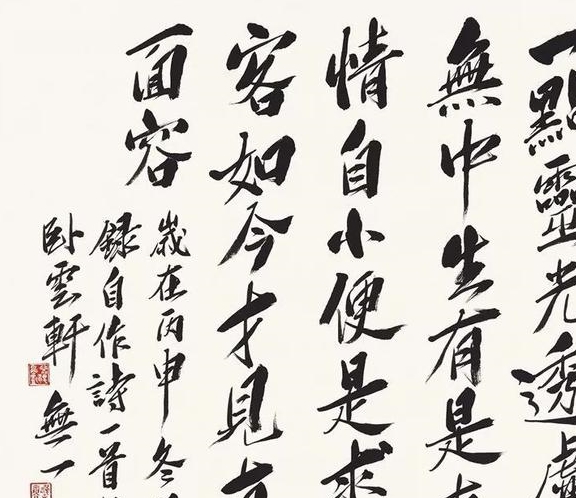 一點靈光透虛
無中生有是
情自小便是求
客如今才見
面容
歲在丙申冬
錄自作詩一首
卧雲軒無一